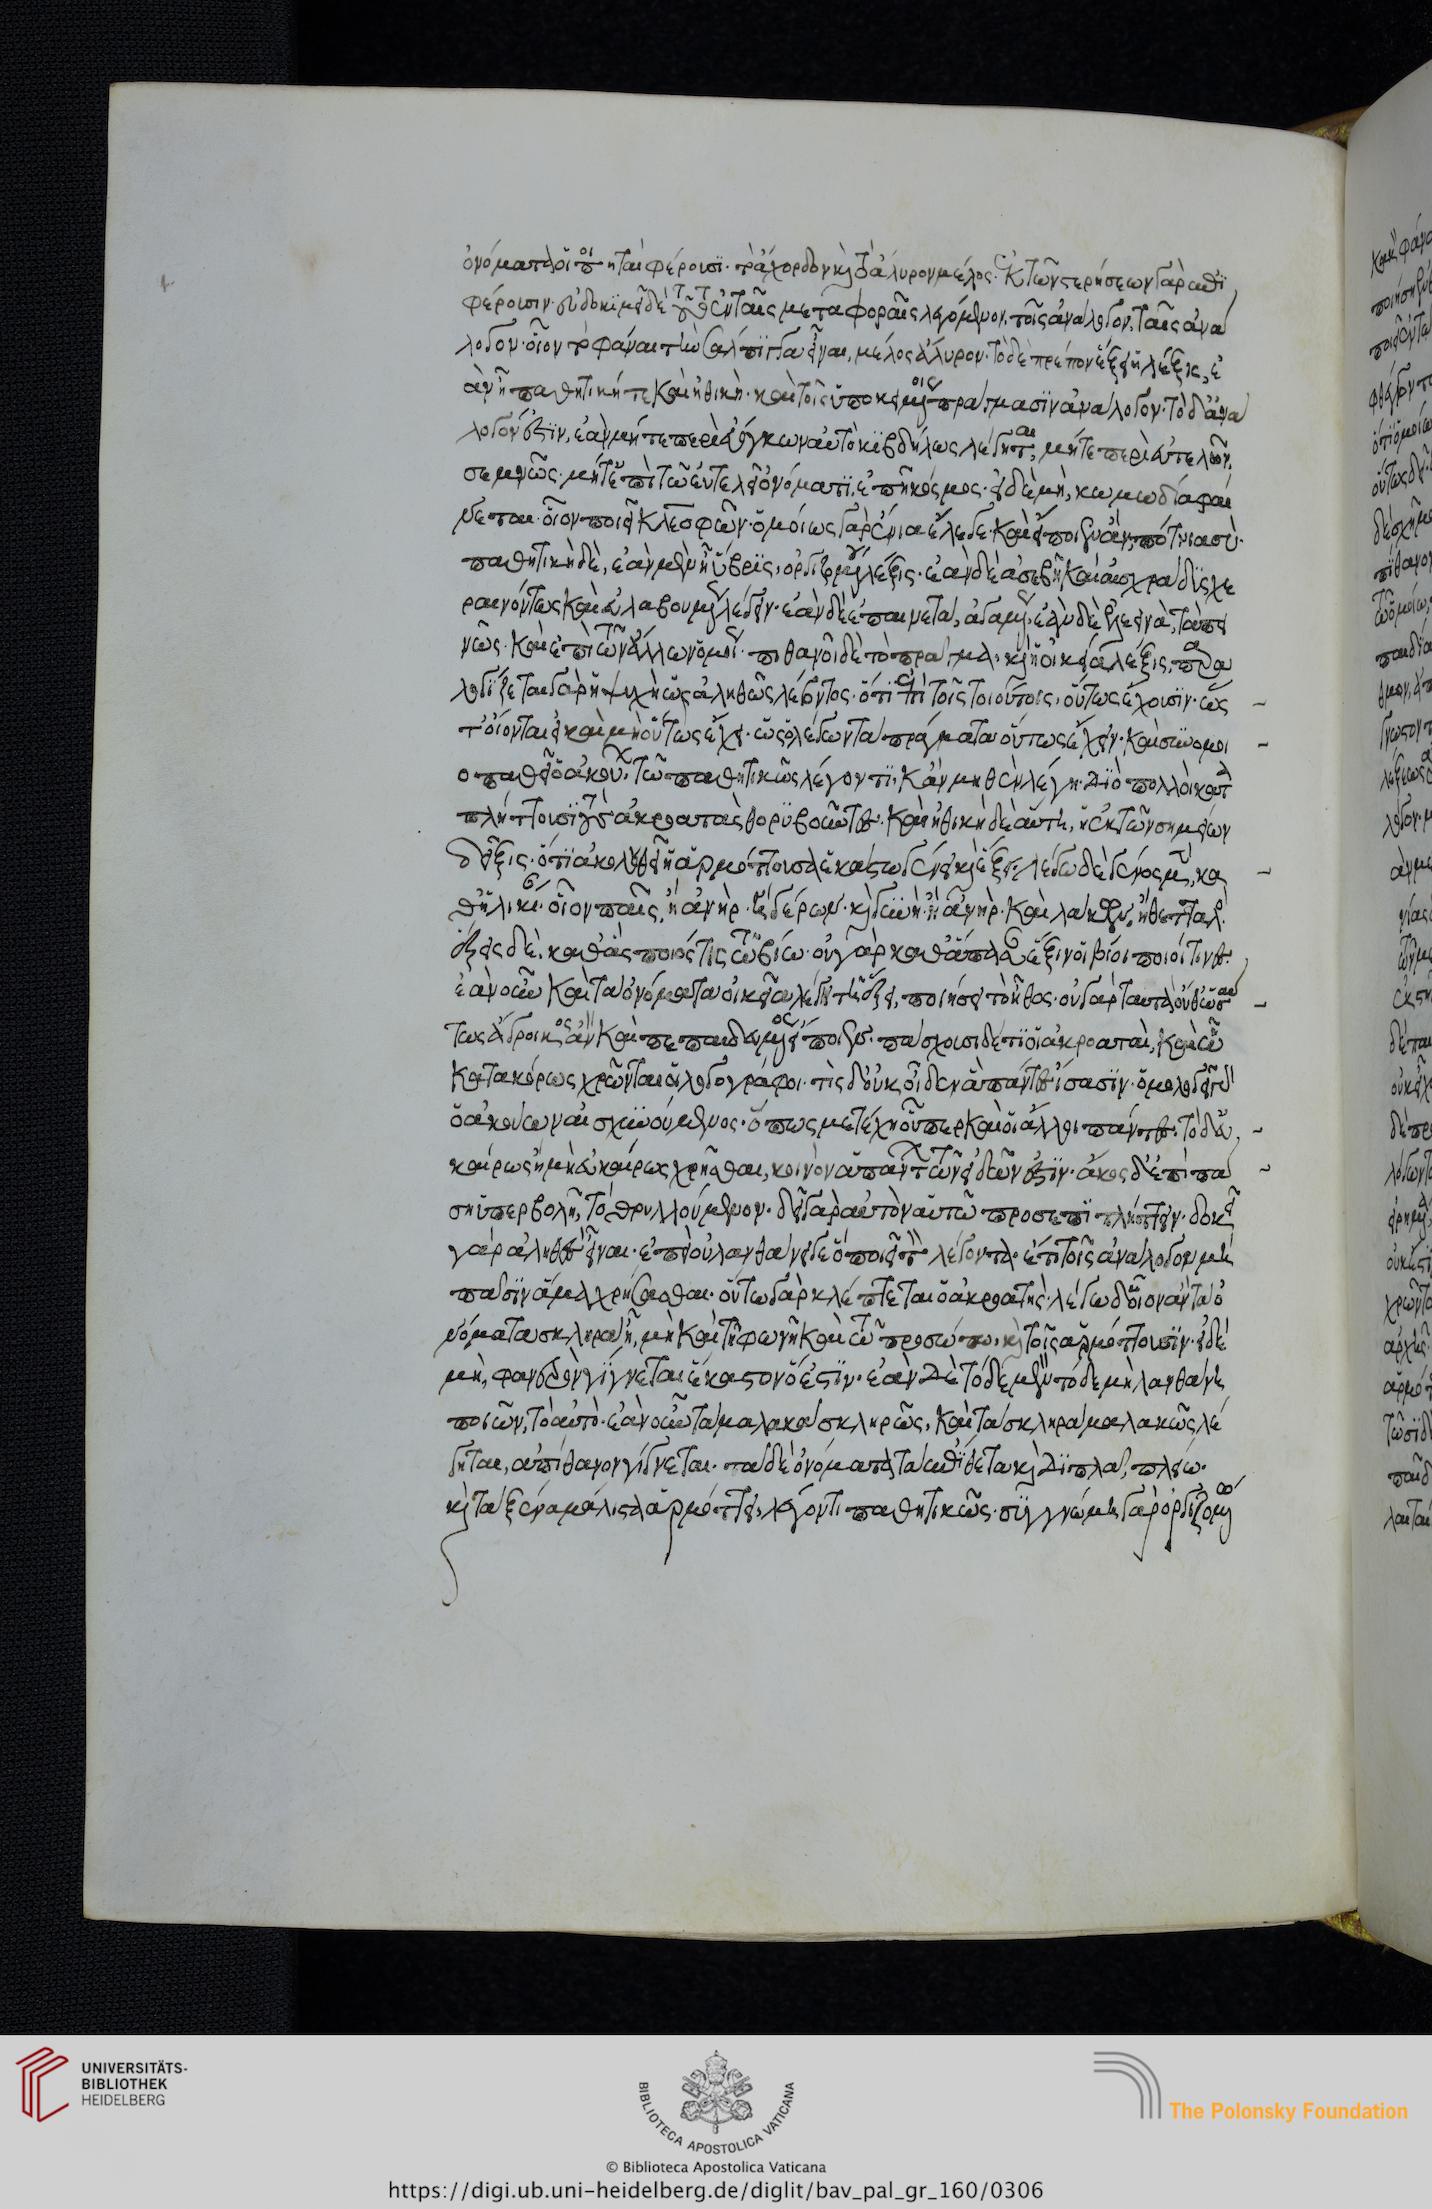 ὀνόματα οἱ ποιηταὶ φέρουσι· τὸ ἄχορδον καὶ τὸ ἄλυρον μέλος. ἐκ τῶν στερήσεων γὰρ ἐπι
φέρουσιν· εὐδοκιμεῖ δὲ τοῦτο ἐν ταῖς μεταφοραῖς λεγόμενον, τοῖς ἀνάλογον, ταῖς ἀνα
λογον· οἷον τὸ φάναι τὴν σάλπιγγα εἶναι, μέλος ἄλυρον. τὸ δὲ πρέπον ἕξει ἡ λέξις, ἐ
ὰν ᾖ παθητική τε καὶ ἠθικὴ· καὶ τοῖς ὑποκειμένοις πράγμασιν ἀνάλογον. τὸ δ' ἀνά
λογόν ἐστιν, ἐὰν μήτε περὶ εὐόγκων αὐτοκιβδήλως λέγηται, μήτε περὶ εὐτελῶν,
σεμνῶς· μήτ' ἐπὶ τῶ εὐτελεῖ ὀνόματι, ἐπῆ κόσμος· εἰ δὲ μὴ, κωμωδία φαί
νεται· οἷον ποιεῖ Κλεοφῶν· ὁμοίως γὰρ ἔνια ἔλεγε καὶ εἰ εἴποιεν ἂν, πότνια συ·
παθητικὴ δὲ, ἐὰν μὲν ᾖ ὕβρις, ὀργιζομένου λέξις· ἐὰν δὲ ἀσεβῆ καὶ αἰσχρὰ δυσχε
ραινόντως καὶ εὐλαβουμένως λέγειν· ἐὰν δὲ ἐπαινετά, ἀγαμένως· ἐὰν δὲ ἐλεεινὰ, ταπει
νῶς. καὶ ἐπὶ τῶν ἄλλων ὁμοίως· πιθανοῖ δὲ τὸ πρᾶγμα, καὶ ἡ οἰκεία λέξις, παρα
λογίζεται γὰρ ἡ ψυχὴ ὡς ἀληθῶς λέγοντος· ὅτι ἐπὶ τοῖς τοιούτοις, οὕτως ἔχουσιν· ὥς
τ' οἴονται εἰ καὶ μὴ οὕτως ἔχει· ὡς ὁ λέγων τὰ πράγματα οὕτως ἔχειν· καὶ συνομοι
οπαθεῖ ὁ ἀκούων τῶ παθητικῶς λέγοντι, κἂν μηθὲν λέγη. διὸ πολλοὶ κατα
πλήττουσι τοὺς ἀκροατὰς θορυβοῦντες. καὶ ἠθικὴ δὲ αὕτη, ἡ ἐκ τῶν σημείων
δεῖξις· ὅτι ἀκολουθεῖ ἡ ἁρμόττουσα ἑκάστω γένει καὶ ἕξει. λέγω δὲ γένος μὲν, κα
θ' ἡλικίαν· οἷον παῖς, ἢ ἀνὴρ· ἢ γέρων· καὶ γυνὴ ἢ ἀνήρ· καὶ λάκων, ἢ θετταλός·
ἕξεις δὲ, καθ' ἃς ποιός τις τῶ βίω· οὐ γὰρ καθ' ἅπασαν ἕξιν οἱ βίοι ποιοί τινες.
ἐὰν οὖν καὶ τὰ ὀνόματα οἰκεῖα λέγη τῆ ἕξει, ποιήσει τὸ ἦθος· οὐ γὰρ ταυτὰ οὐδ' ὡσαύ
τως ἀγροικος ἂν καὶ πεπαιδευμένος εἴποιεν. πάσχουσι δέ τι οἱ ἀκροαταὶ, καὶ ὧ
κατακόρως χρῶνται οἱ λογογράφοι· τίς δ' οὐκ οἶδεν ἅπαντες ἴσασιν· ὁμολογεῖ γὰρ
ὁ ἀκούων αἰσχυνόμενος· ὅπως μετέχη οὗπερ καὶ οἱ ἄλλοι πάντες. τὸ δ' εὐ
καίρως ἢ μὴ εὐκαίρως χρῆσθαι, κοινὸν ἁπάντων τῶν εἰδῶν ἐστιν· ἄκος δ' ἐπὶ πά
ση ὑπερβολῆ, τὸ θρυλλούμενον· δεῖ γὰρ αὐτὸν αὑτῶ προσεπιπλήττειν· δοκεῖ
γὰρ ἀληθὲς εἶναι· ἐπεὶ οὐ λανθάνει γε ὃ ποιεῖ τὸν λέγοντα· ἔτι τοῖς ἀνάλογον μὴ
πᾶσιν ἅμα χρήσασθαι· οὕτω γὰρ κλέπτεται ὁ ἀκροατής· λέγω δ' οἷον ἂν τὰ ὀ
νόματα σκληρὰ ᾖ, μὴ καὶ τῆ φωνῆ καὶ τῶ προσώπω, καὶ τοῖς ἁρμόττουσιν· εἰ δὲ
μὴ, φανερὸν γίγνεται ἕκαστον ὅ ἐστιν· ἐὰν δὲ τὸ δε μὲν τὸ δε μὴ λανθάνει
ποιῶν, τὸ αὐτό. ἐὰν οὖν τὰ μαλακὰ σκληρῶς, καὶ τὰ σκληρὰ μαλακῶς λέ
γηται, ἀπίθανον γίγνεται. τὰ δὲ ὀνόματα τὰ ἐπίθετα καὶ διπλᾶ, πλείω·
καὶ τὰ ξένα μάλιστα ἁρμόττει, λέγοντι παθητικῶς. συγγνώμη γὰρ ὀργιζομένω
UNIVERSITÄTS-
BIBLIOTHEK
HEIDELBERG
BIBLIOTECA APOSTOLICA VATICANA
The Polonsky Foundation
© Biblioteca Apostolica Vaticana
https://digi.ub.uni-heidelberg.de/diglit/bav_pal_gr_160/0306